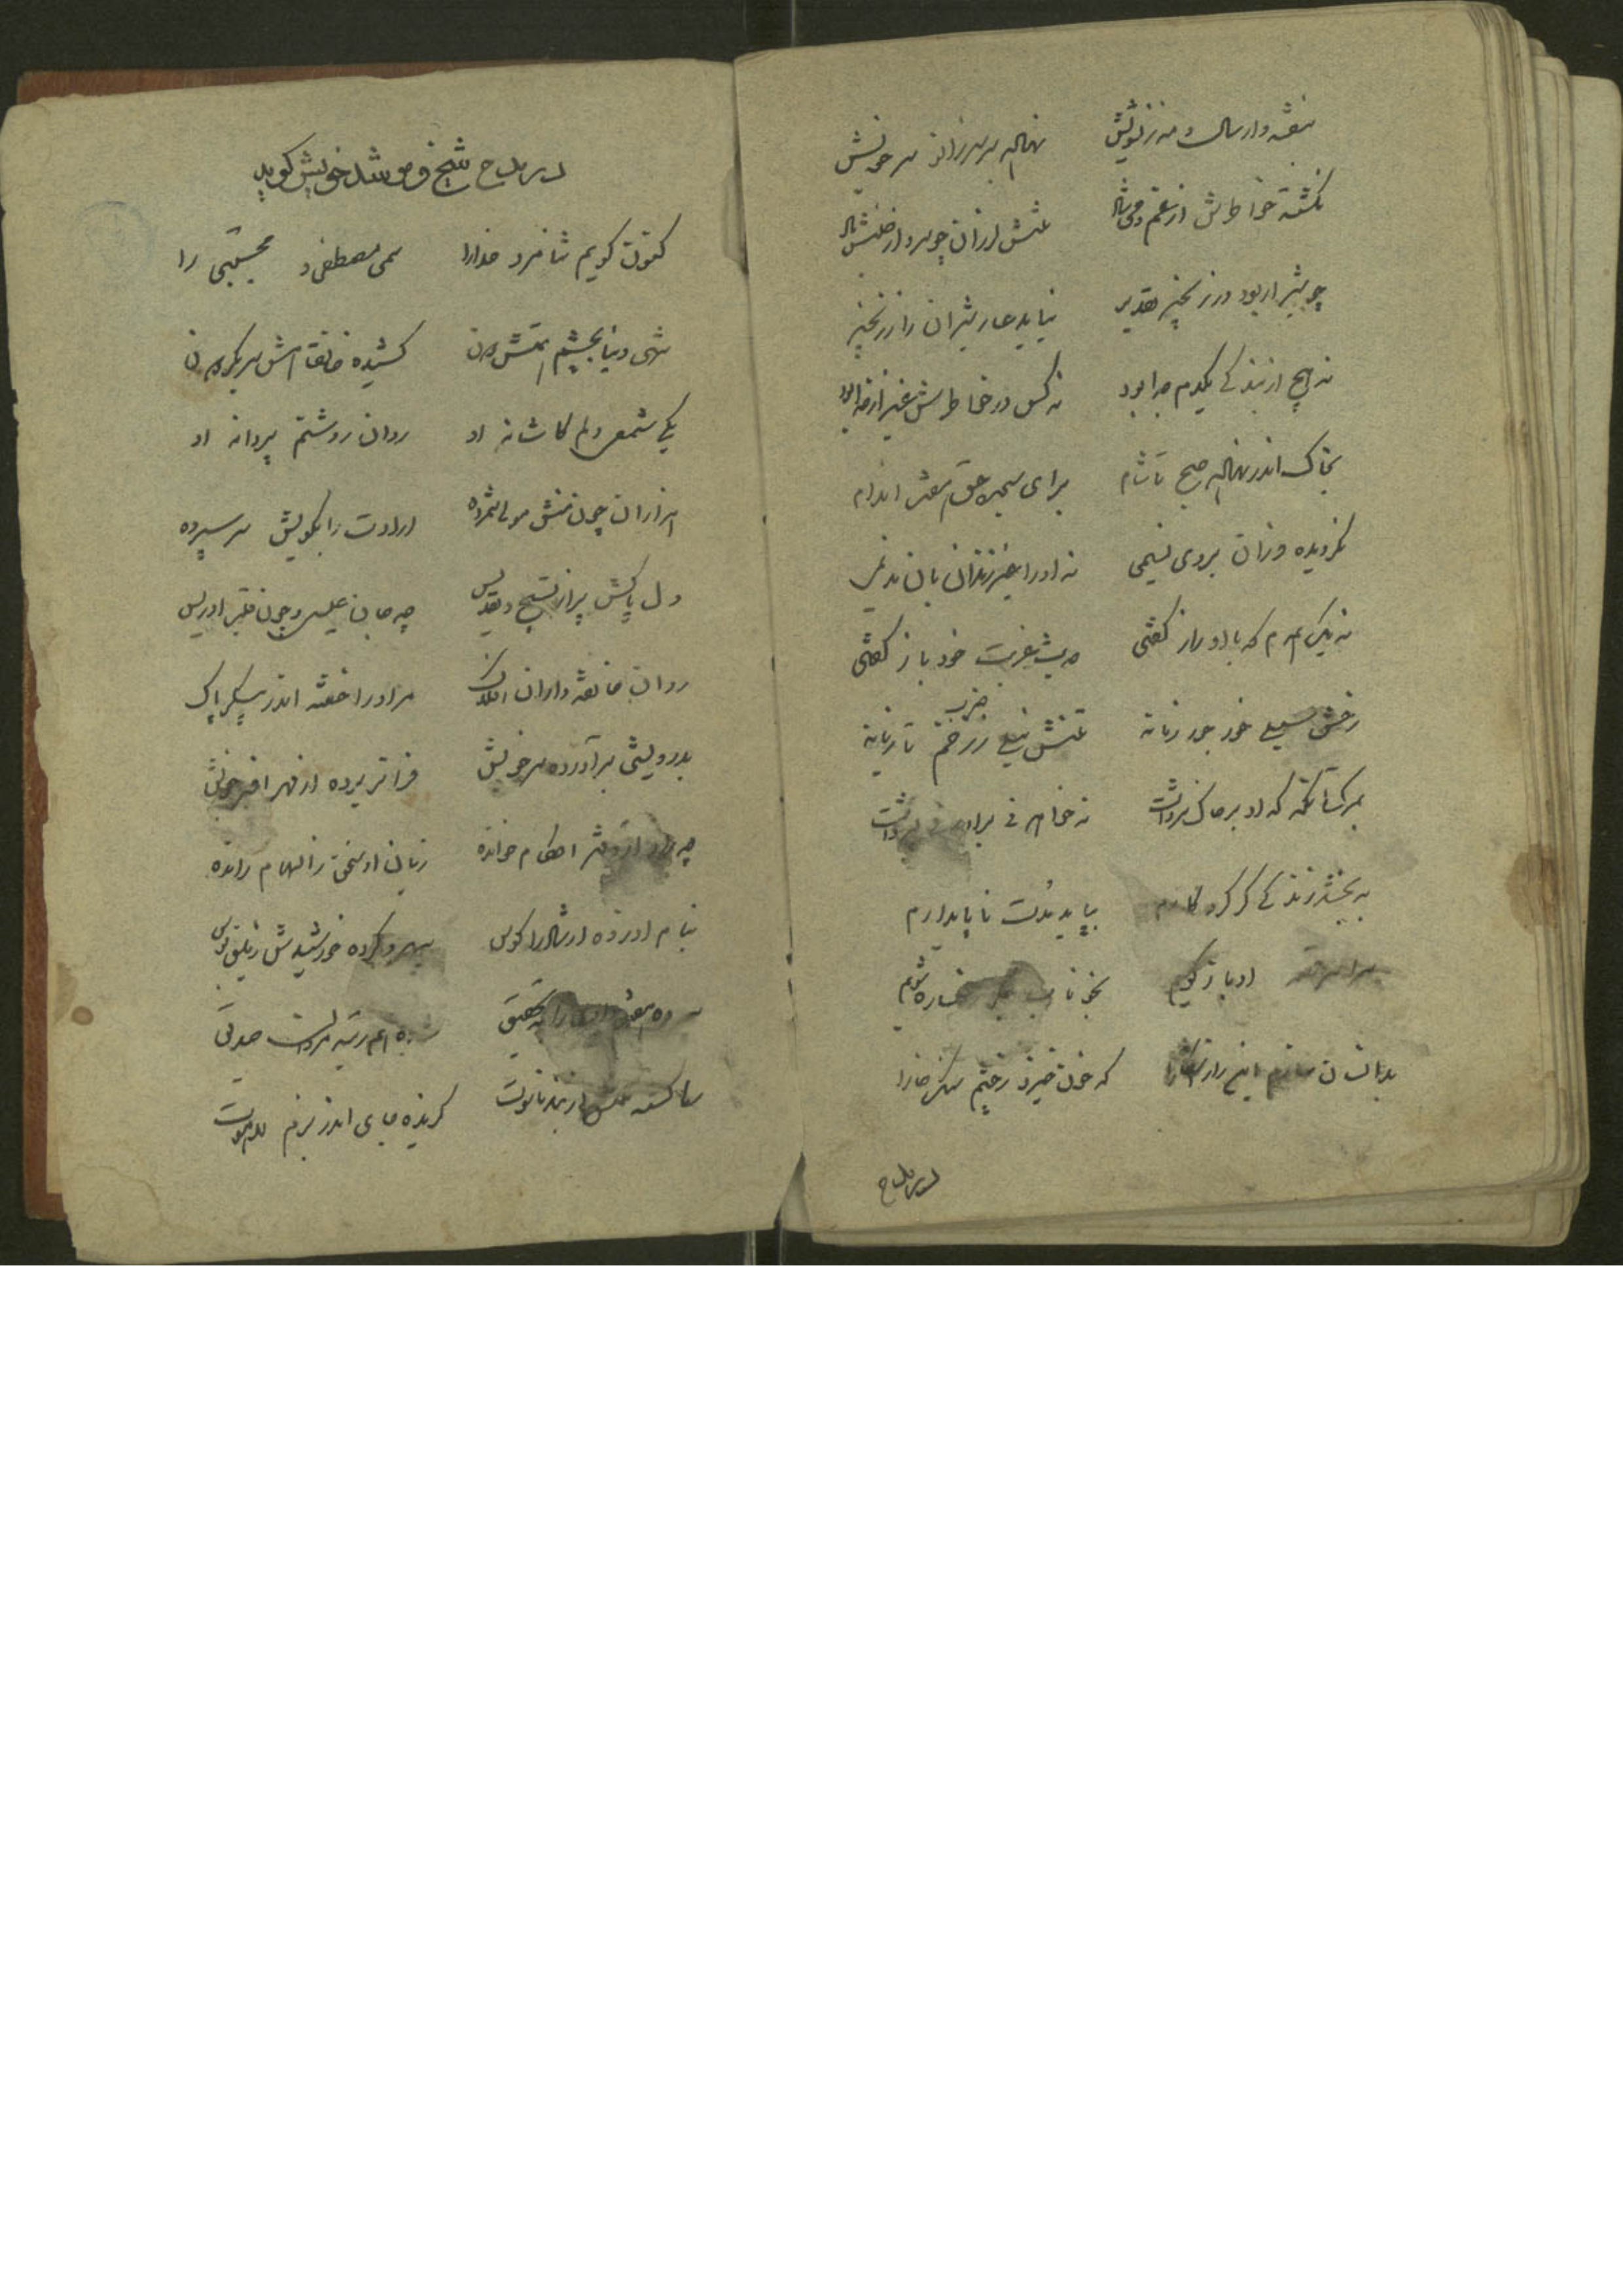 بنفشه وار سال و مه ز تویش نهاله بر سر زانو سر خویش
نگشته خاطرش از غم دمی شاد تنش لرزان چو سرو از جنبش باد
چو شیر ار بود در زنجیر تقدیر نیاید عار شیران را ز زنجیر
نه هیچ از بندگی یکدم جدا بود نه کس در خاطرش غیر از خدا بود
بخاک اندر نهاله صبح تا شام برای سجده حق هفت اندام
نگردیده وزان بروی نسیمی نه او را بغیر زندان بان ندیمی
نه یک همدم که با او راز گفتی حدیث غربت خود باز گفتی
رخش سیلی خور جور زمانه تنش نیلی ز زخم ضرب تازیانه
بمرگ آنگه که او بر خاک سر داشت نه خواهر نی برادر
به بخشد زندگی گر کردگارم بپاید مدت ناپایدارم
او باز گویم بخوناب شویم
بدانسان سازم این راز آشکارا که خون خیزد ز چشم سنگ خارا
در مدح
در مدح شیخ و مرشد خویش گوید
کنون گویم ثنا مرد خدا را سمی مصطفی و مجتبی را
شهی دنیا بچشم همتش دون کشیده خانقاهش سر بگردون
یکی شمع و دلم کاشانه او روان روشنم پروانه او
هزاران چون منش مولی شمرده ارادت را بکویش سر سپرده
دل پاکش پر از تسبیح و تقدیس چه جان عیسی و چون فقر ادریس
روان خانقه داران افلاک مر او را خفته اندر پیکر پاک
بدرویشی برآورده سر خویش فراتر برده از مهر افسر خویش
احکام خوانده زبان او سخن ز الهام رانده
بنام او زده ارشاد را کوس سپهر و کرده خورشیدش زمین بوس
تحقیق صدیق
ناسوت گزیده جای اندر بزم لاهوت